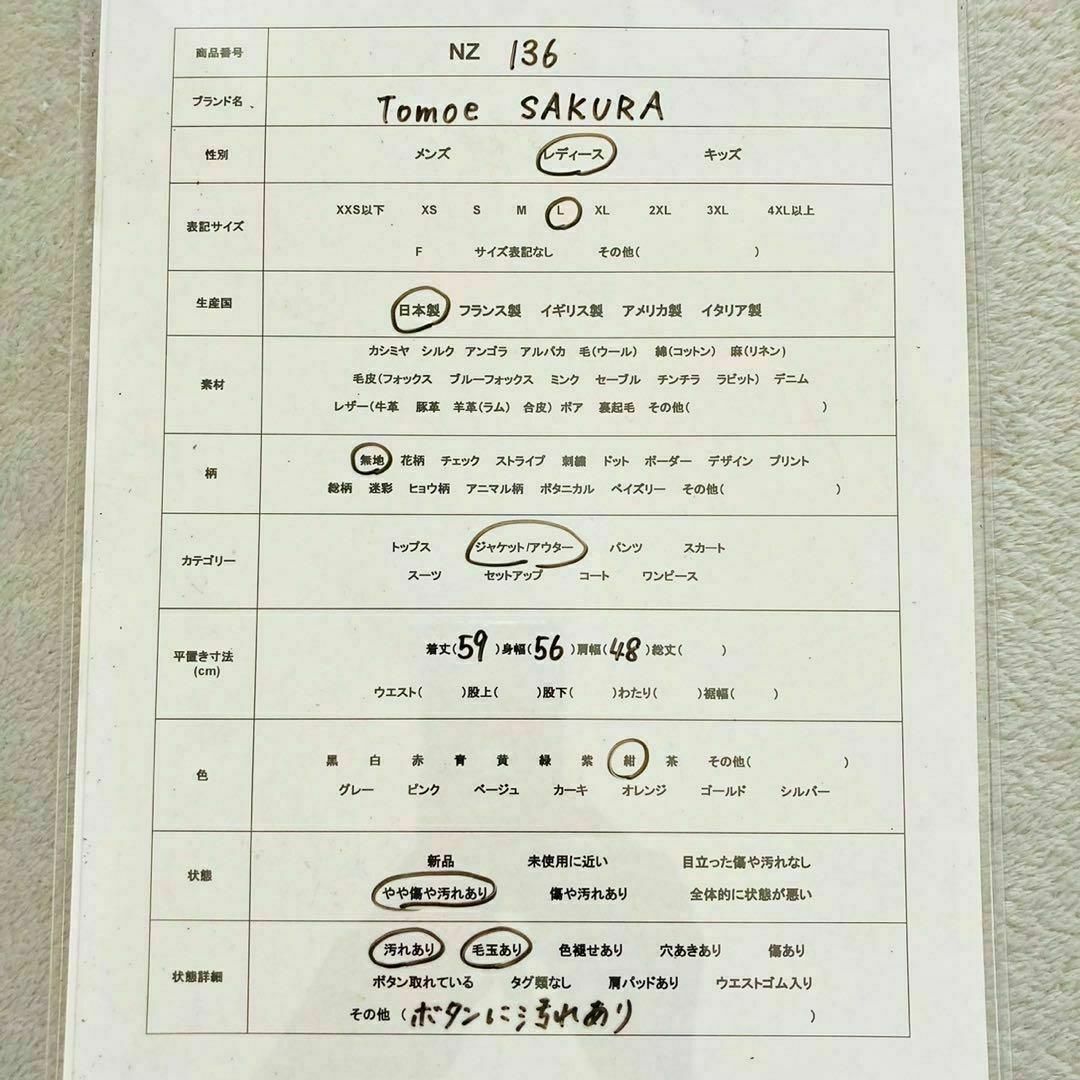 商品番号 NZ 136
ブランド名 Tomoe SAKURA
性別 メンズ レディース キッズ
表記サイズ XXS以下 XS S M L XL 2XL 3XL 4XL以上
F サイズ表記なし その他( )
生産国 日本製 フランス製 イギリス製 アメリカ製 イタリア製
カシミヤ シルク アンゴラ アルパカ 毛(ウール) 綿(コットン) 麻(リネン)
素材 毛皮(フォックス ブルーフォックス ミンク セーブル チンチラ ラビット) デニム
レザー(牛革 豚革 羊革(ラム) 合皮) ボア 裏起毛 その他( )
柄 無地 花柄 チェック ストライプ 刺繍 ドット ボーダー デザイン プリント
総柄 迷彩 ヒョウ柄 アニマル柄 ボタニカル ペイズリー その他( )
カテゴリー トップス ジャケット/アウター パンツ スカート
スーツ セットアップ コート ワンピース
平置き寸法 着丈(59)身幅(56)肩幅(48)総丈( )
(cm) ウエスト( )股上( )股下( )わたり( )裾幅( )
色 黒 白 赤 青 黄 緑 紫 紺 茶 その他( )
グレー ピンク ベージュ カーキ オレンジ ゴールド シルバー
状態 新品 未使用に近い 目立った傷や汚れなし
やや傷や汚れあり 傷や汚れあり 全体的に状態が悪い
状態詳細 汚れあり 毛玉あり 色褪せあり 穴あきあり 傷あり
ボタン取れている タグ類なし 肩パッドあり ウエストゴム入り
その他 (ボタンに汚れあり )